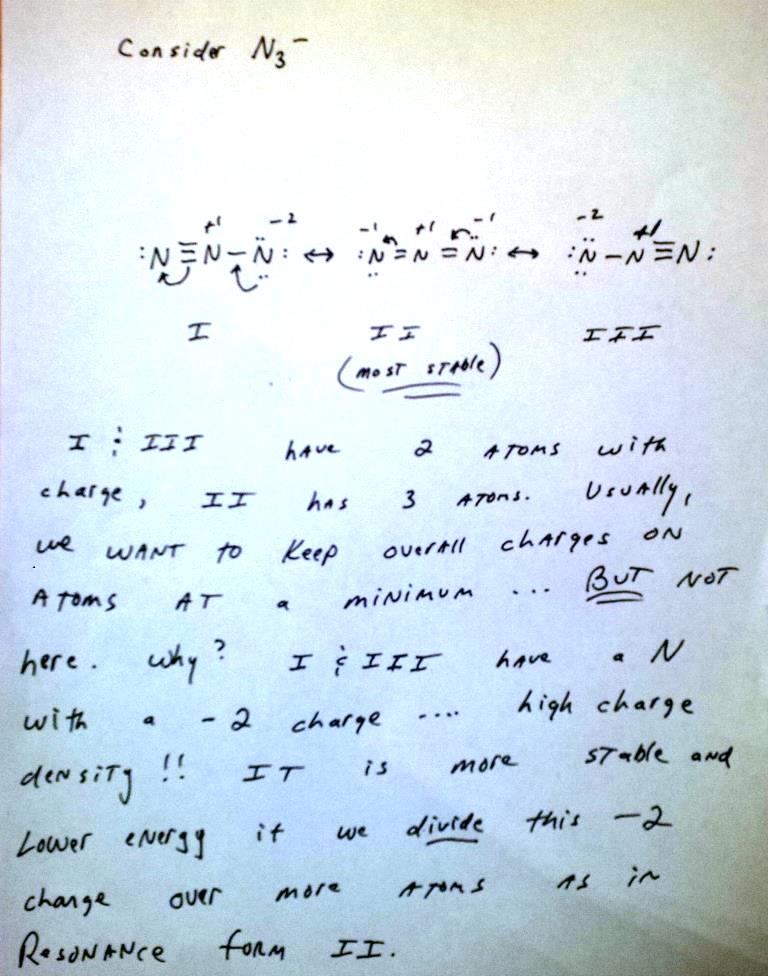 Consider N3-
+1 -2 -1 +1 -1 -2 +1
:N≡N-N̈: ↔ :N=N=N̈: ↔ :N̈-N≡N:
I II III
(most stable)
I & III have 2 atoms with
charge, II has 3 atoms. Usually,
we want to keep overall charges on
atoms at a minimum ... BUT not
here. why? I & III have a N
with a -2 charge .... high charge
density!! IT is more stable and
Lower energy if we divide this -2
charge over more atoms as in
Resonance form II.